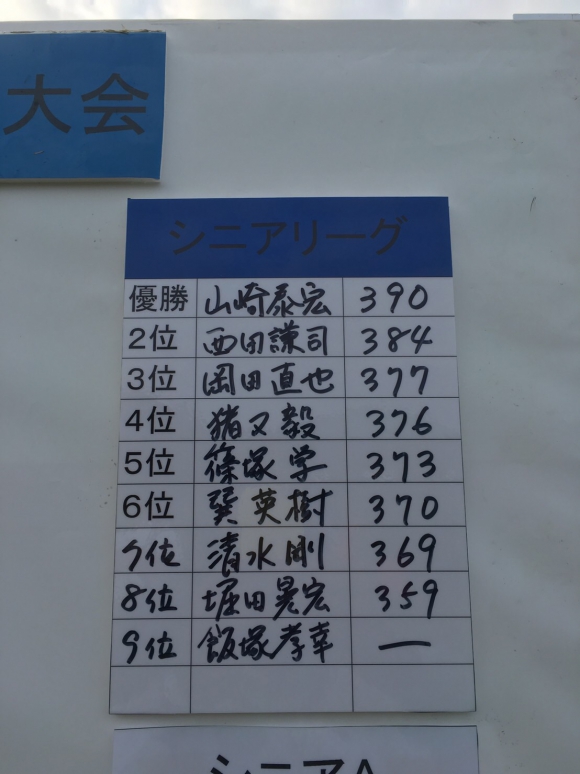 大会
シニアリーグ
優勝 山崎泰宏 390
2位 西田謙司 384
3位 岡田直也 377
4位 猪又毅 376
5位 篠塚学 373
6位 巽英樹 370
7位 清水剛 369
8位 堀田晃宏 359
9位 飯塚孝幸 ―
シニアA